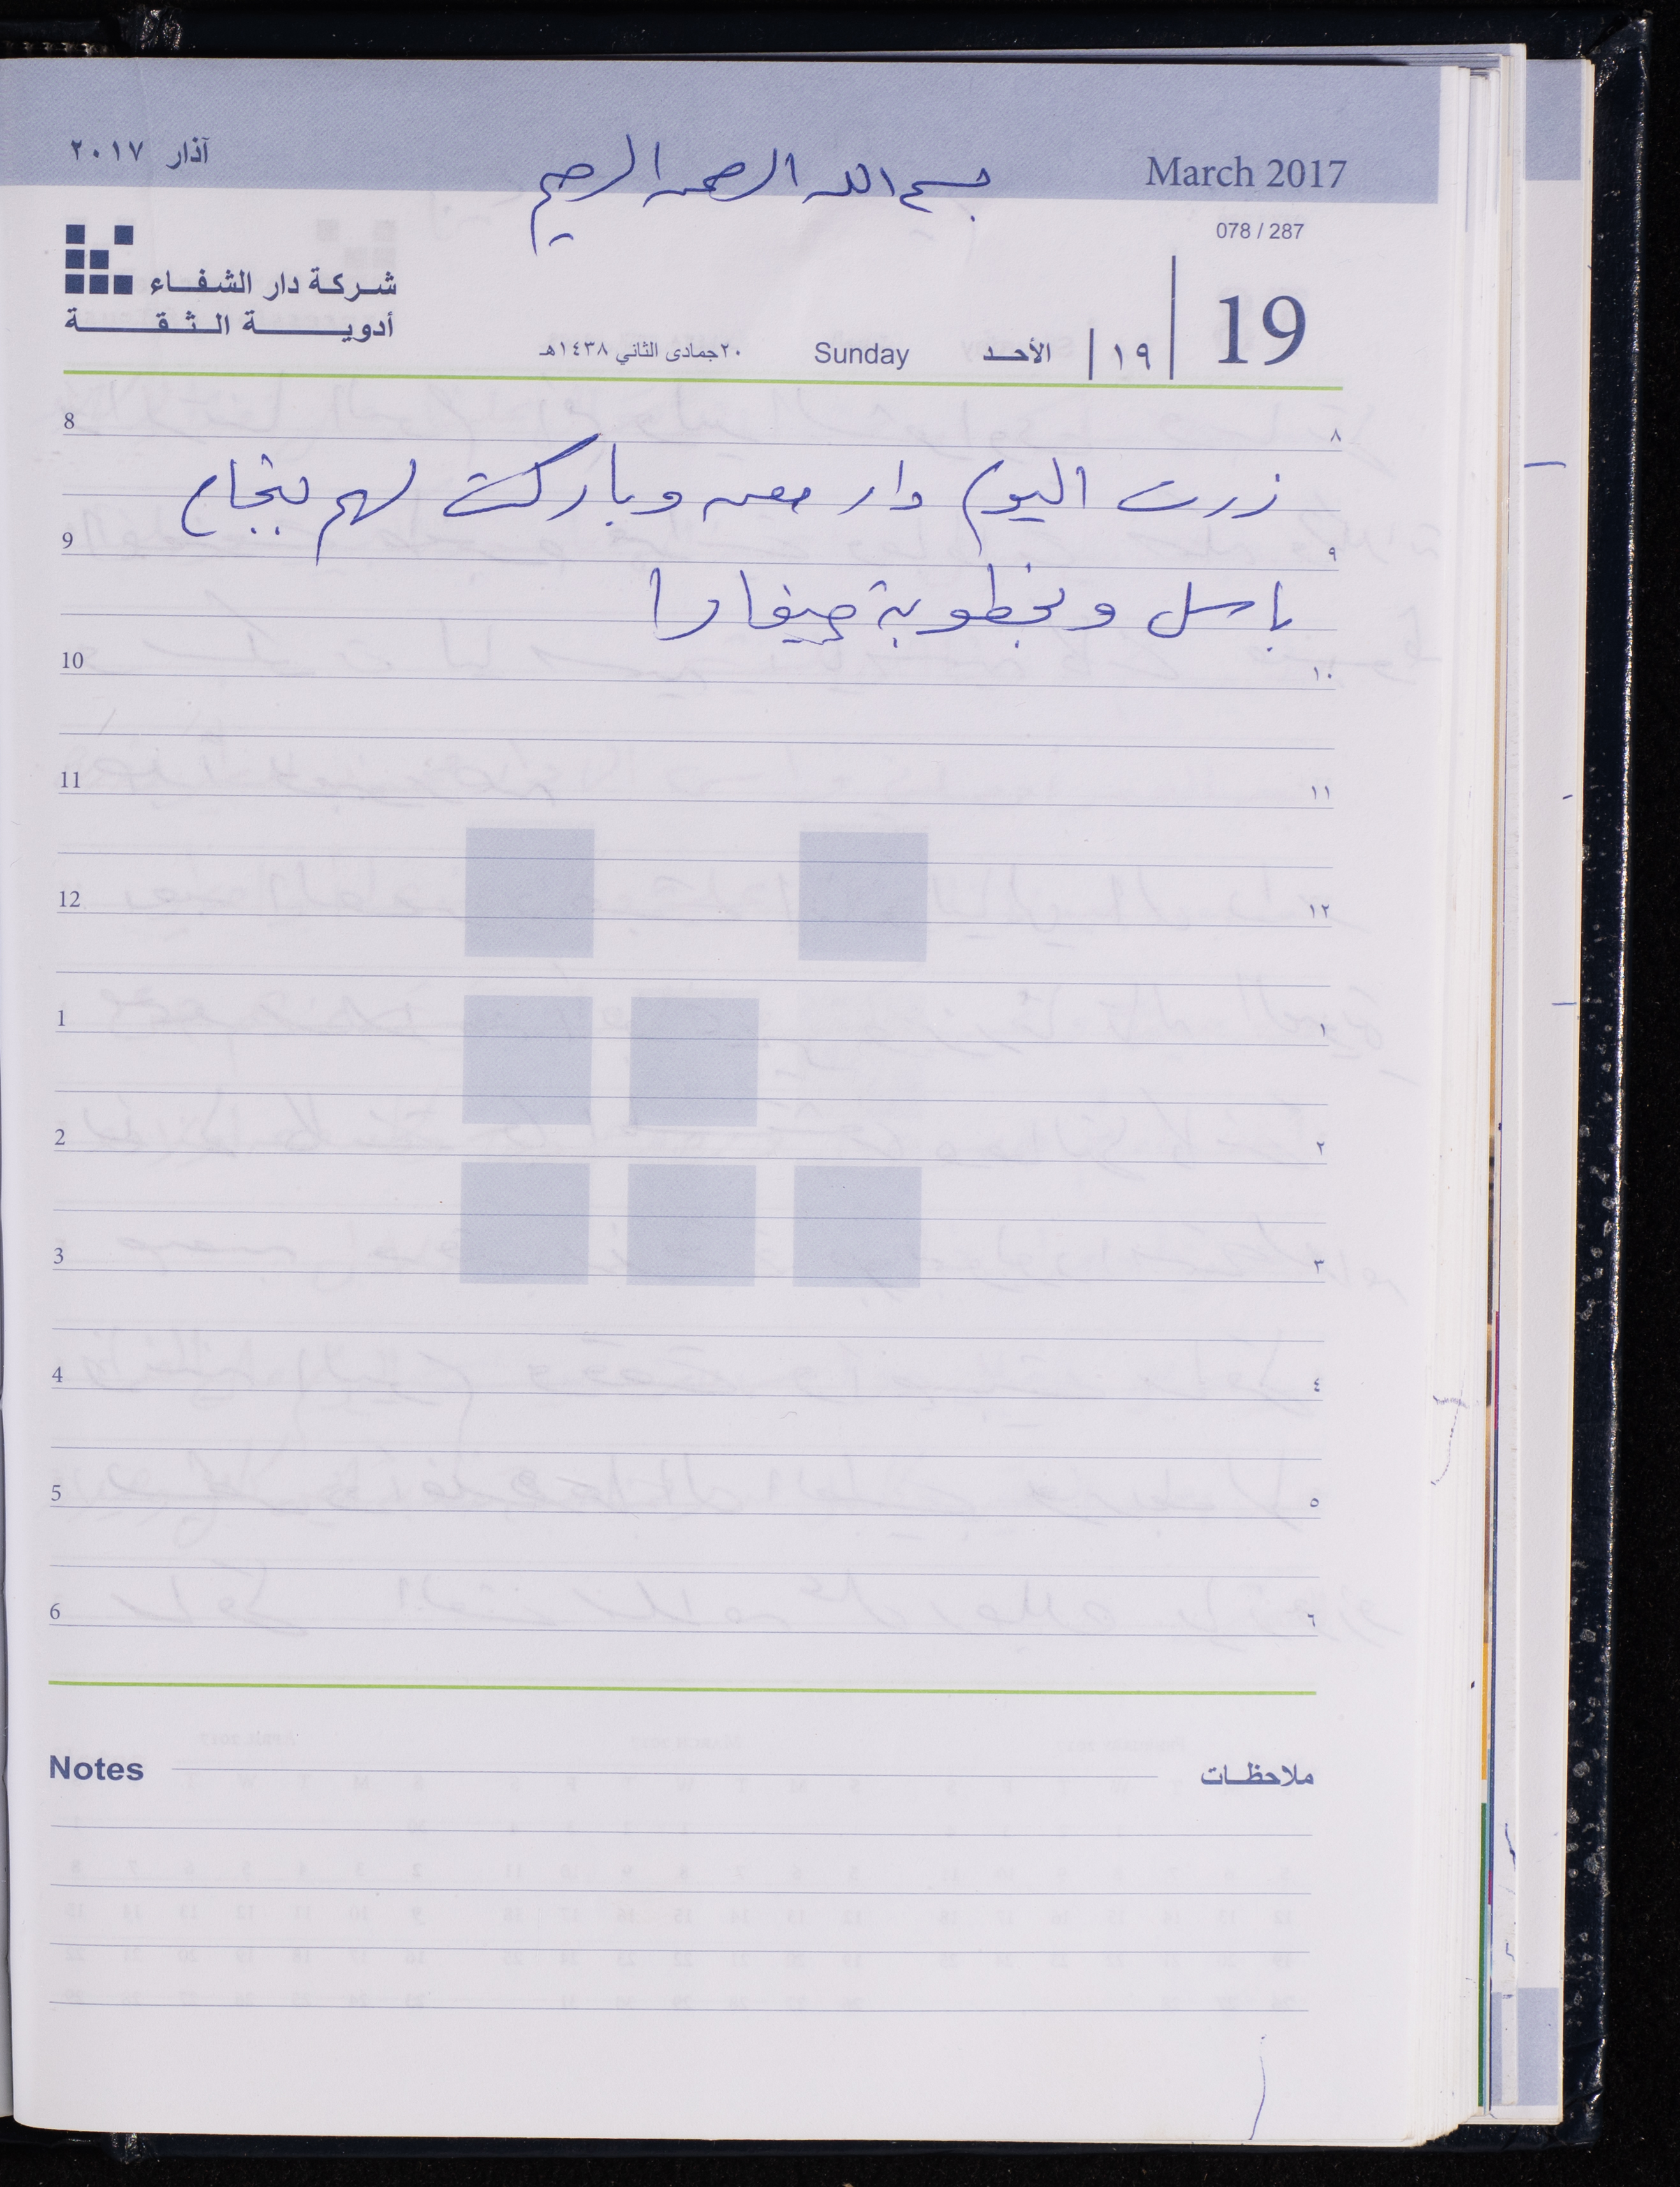 آذار ٢٠١٧
بسم الله الرحمن الرحيم
March 2017
078 / 287
شركة دار الشفاء
أدوية الثقة
٢٠جمادى الثاني ١٤٣٨هـ Sunday الأحد ١٩ 19
8 ٨
زرت اليوم دار معن وباركت لهم بنجاح
9 ٩
باسل وبخطوبة جيفارا
10 ١٠
11 ١١
12 ١٢
1 ١
2 ٢
3 ٣
4 ٤
5 ٥
6 ٦
Notes ملاحظات